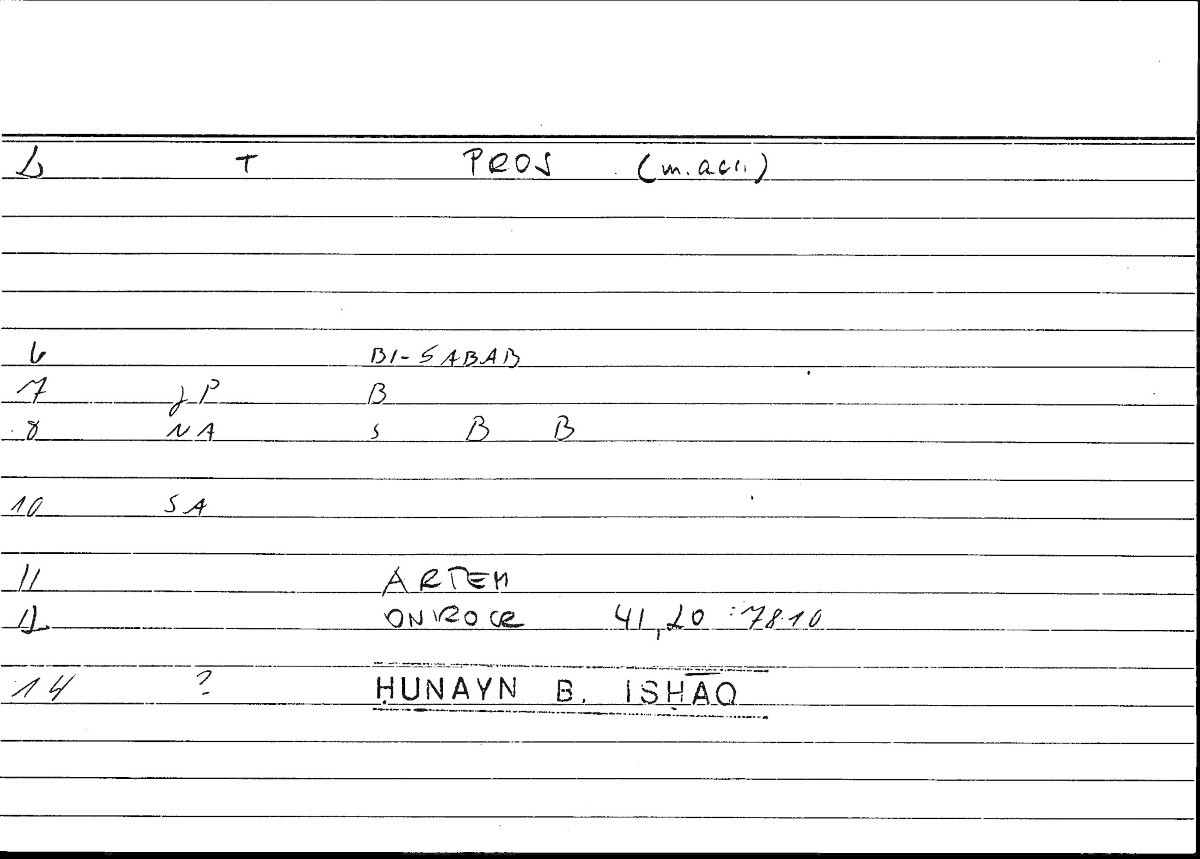 2 T PROS (m. acc.)
6 BI-SABAB
7 JP B
8 NA S B B
10 SA
11 ARTEM
12 ONIROCR 41,20 : 78.10
14 ? ḤUNAYN B. ISḤĀQ